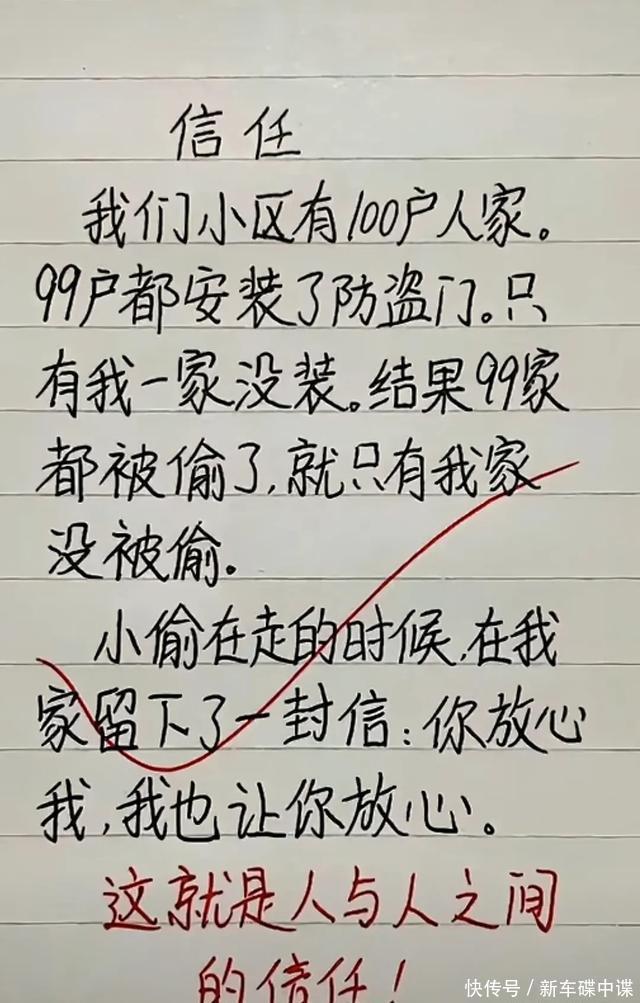 信任
我们小区有100户人家。
99户都安装了防盗门。只
有我一家没装。结果99家
都被偷了,就只有我家
没被偷.
小偷在走的时候,在我
家留下了一封信:你放心
我,我也让你放心。
这就是人与人之间
的信任!
快传号/新车碟中谍